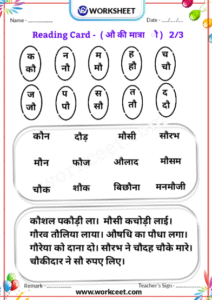 V2 WORKSHEET
Name - Date - ../../..
Reading Card - ( औ की मात्रा ौ ) 2/3
क न म ह च
कौ नौ मौ हौ चौ
ज प स त द
जौ पौ सौ तौ दौ
कौन दौड़ मौसी सौरभ
मौन फौज औलाद मौसम
चौक शौक बिछौना मनमौजी
कौशल पकौड़ी ला। मौसी कचौड़ी लाई।
गौरव तौलिया लाया। औषधि का पौधा लगा।
गौरेया को दाना दो। सौरभ ने चौदह चौके मारे।
चौकीदार ने सौ रुपए लिए।
Remark - Teacher's Sign -
www.workceet.com